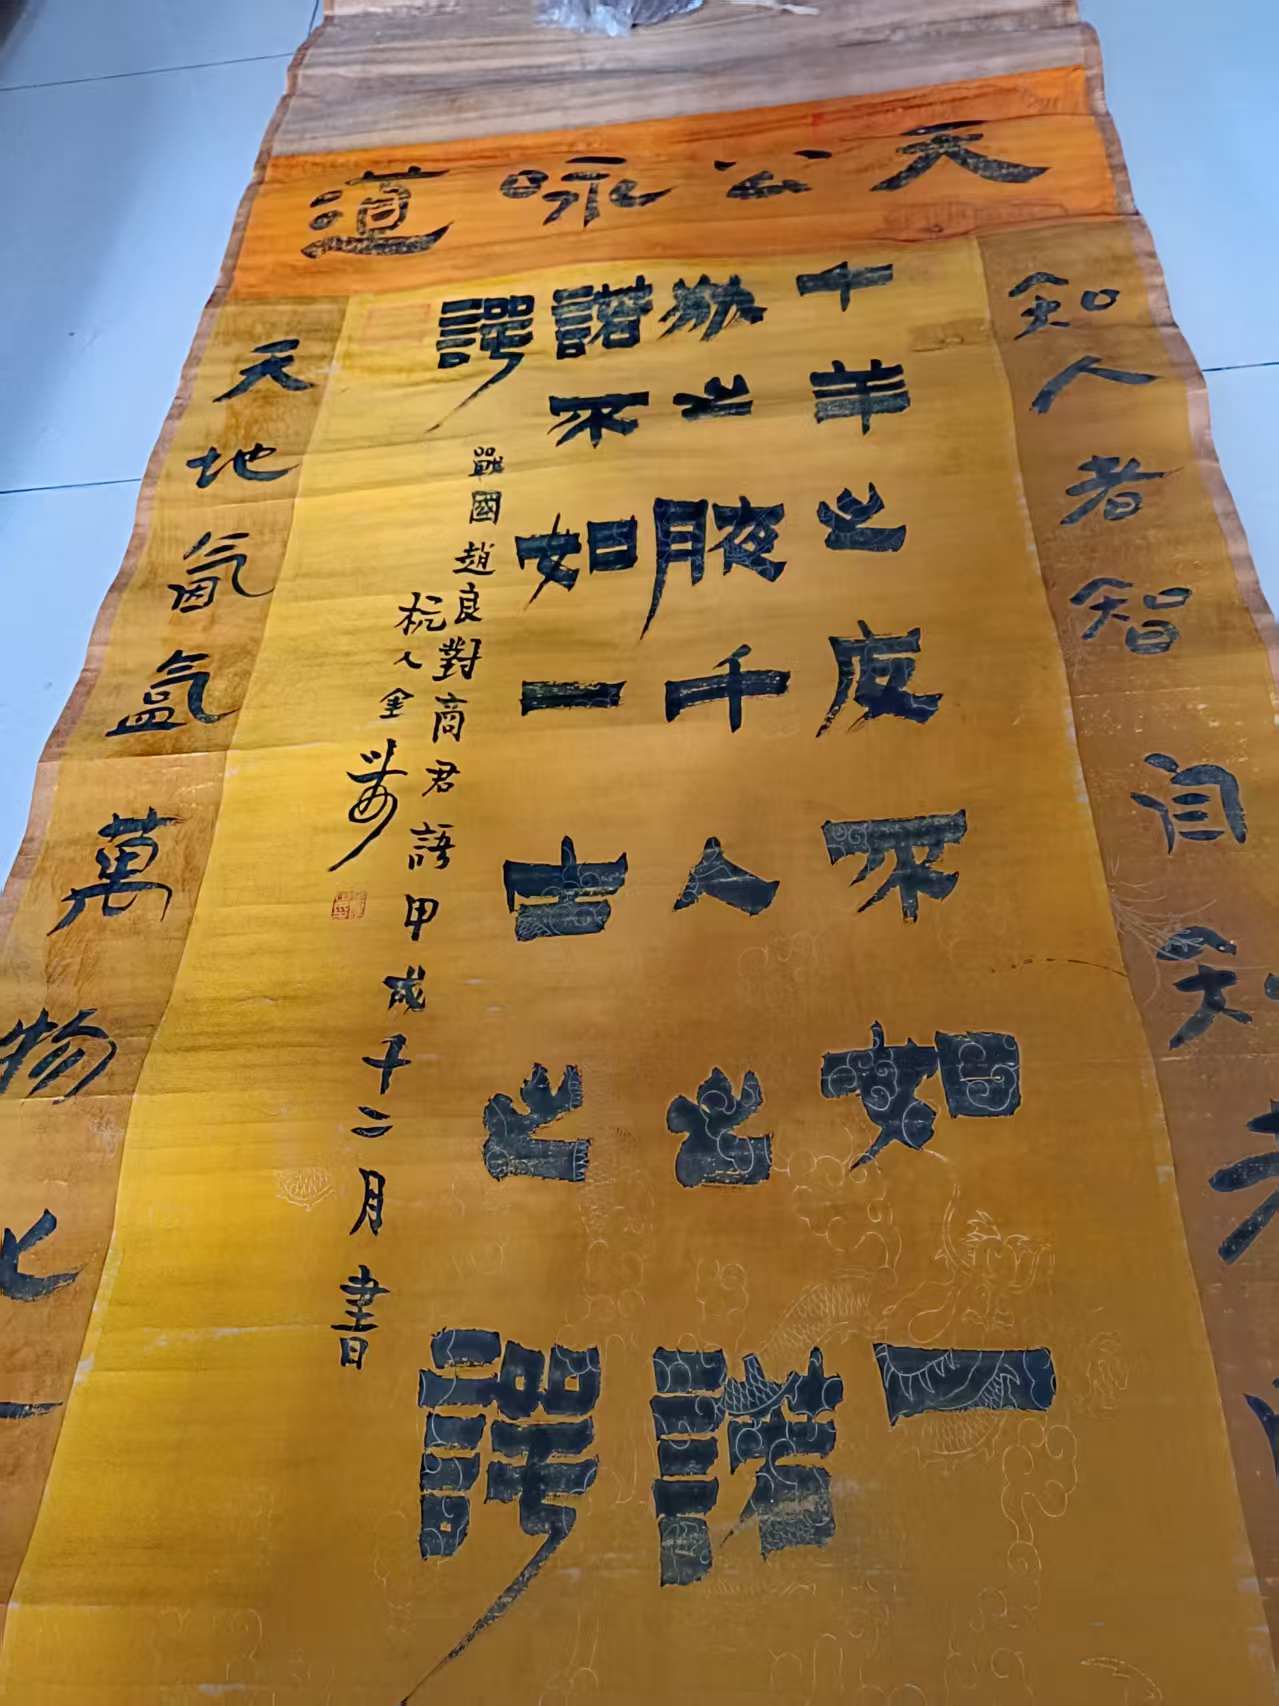 天公咏道
知人者智自知者
千羊之皮不如一
狐之腋千人之諾
諾不如一士之諤
諤
戰國趙良對商君語甲戌十二月書
杭人金農
天地氤氳萬物化